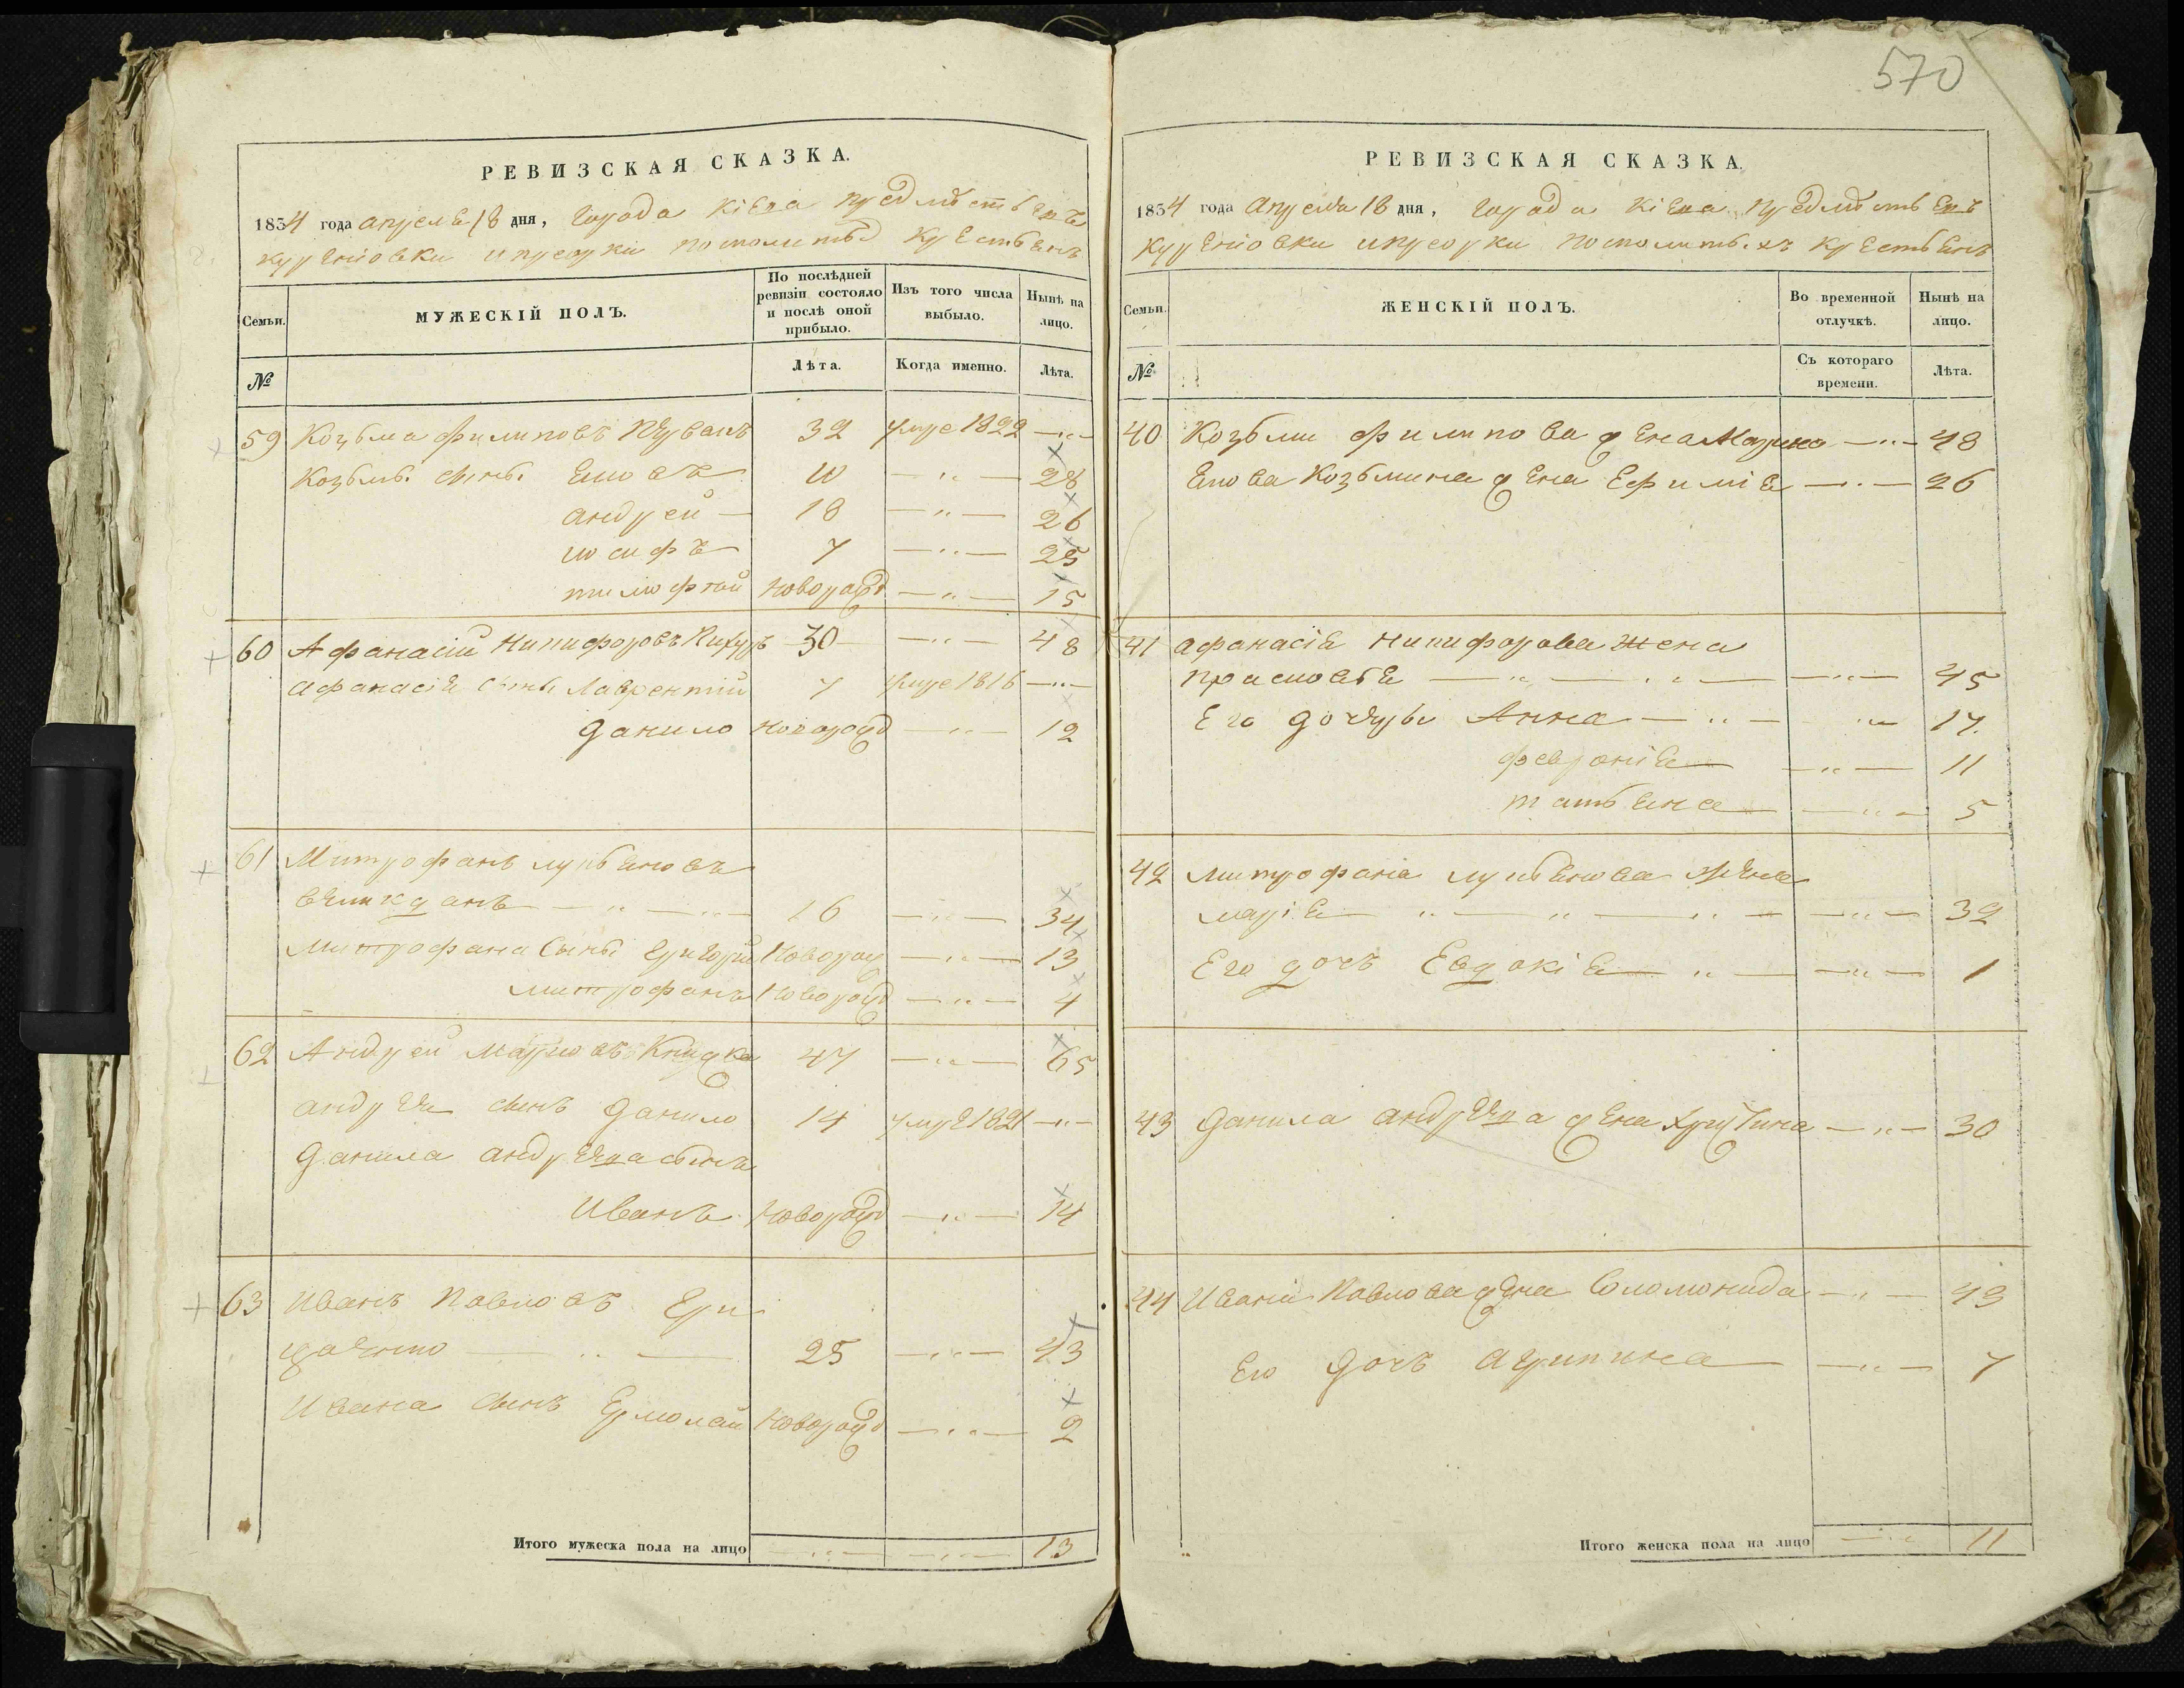 570
РЕВИЗСКАЯ СКАЗКА.
1834 года апреля 18 дня, Города Кіева предмѣстьевъ
Куреніовки и приорки посполитых крестьянъ
Семьи.
МУЖЕСКІЙ ПОЛЪ.
По послѣдней ревизіи состояло и послѣ оной прибыло.
Изъ того числа выбыло.
Нынѣ на лицо.
№
Лѣта.
Когда именно.
Лѣта.
59 Козьма Филиповъ 32 умре 1822
Козьмы сыны 10 28
андрей 18 26
иосифъ 7 25
тимофтей новорожд 15
60 Афанасій Никифоровъ 30 48
афанасія сыны Лаврентій 7 умре 1816
данило новорожд 12
61 Митрофанъ
16 34
Митрофана сыны григорій Новорож 13
митрофанъ Новорожд 4
62 Андрей 47 65
андрея сынъ данило 14 умре 1821
данила андреева сынъ
Иванъ Новорожд 14
63 Иванъ Павловъ Гри
цаенко 25 43
Ивана сынъ Ермолай Новорожд 2
Итого мужеска пола на лицо 13
РЕВИЗСКАЯ СКАЗКА.
1834 года апреля 18 дня, города Кіева предмѣстьевъ
Куреніовки и приорки посполитыхъ крестьянъ
Семьи.
ЖЕНСКІЙ ПОЛЪ.
Во временной отлучкѣ.
Нынѣ на лицо.
№
Съ котораго времени.
Лѣта.
40 Козьми Филипова жена Марина 48
Козьмина жена Ефимія 26
41 афанасія Никифорова жена
прасковія 45
Его дочеры Анна 17
февронія 11
татьяна 5
42 митрофана жена
марія 32
Его дочъ Евдокія 1
43 Данила андреева жена Христина 30
44 Ивана Павлова жена Соломонида 43
Его дочъ агрипина 7
Итого женска пола на лицо 11